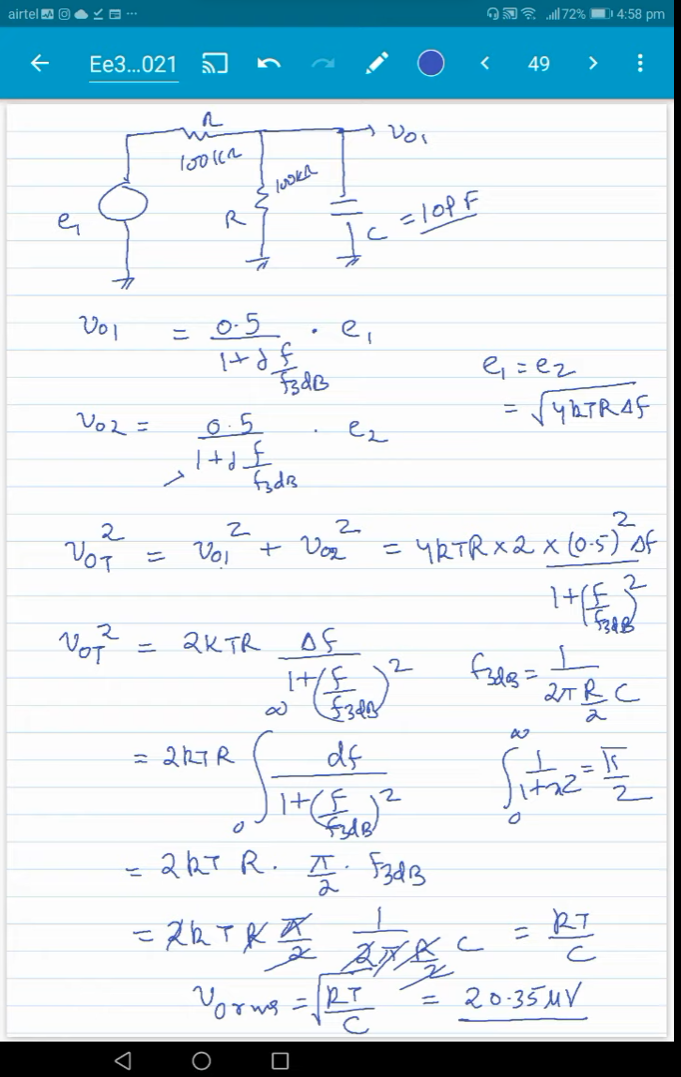 airtel 72% 4:58 pm
Ee3...021 49
R
100KΩ
100KΩ
R
e1
C = 10PF
vo1
vo1 = 0.5 / (1+j f/f3dB) . e1
e1 = e2
= √4kTRΔf
vo2 = 0.5 / (1+j f/f3dB) . e2
voT² = vo1² + vo2² = 4kTR × 2 × (0.5)² Δf / (1+(f/f3dB)²)
voT² = 2KTR Δf / (1+(f/f3dB)²)
f3dB = 1 / (2π R/2 C)
= 2kTR ∫0^∞ df / (1+(f/f3dB)²)
∫0^∞ 1/(1+x2) = π/2
= 2kT R . π/2 . f3dB
= 2kT R π/2 1 / (2π R/2 C) = kT/C
Vorms = √(kT/C) = 20.35 μV